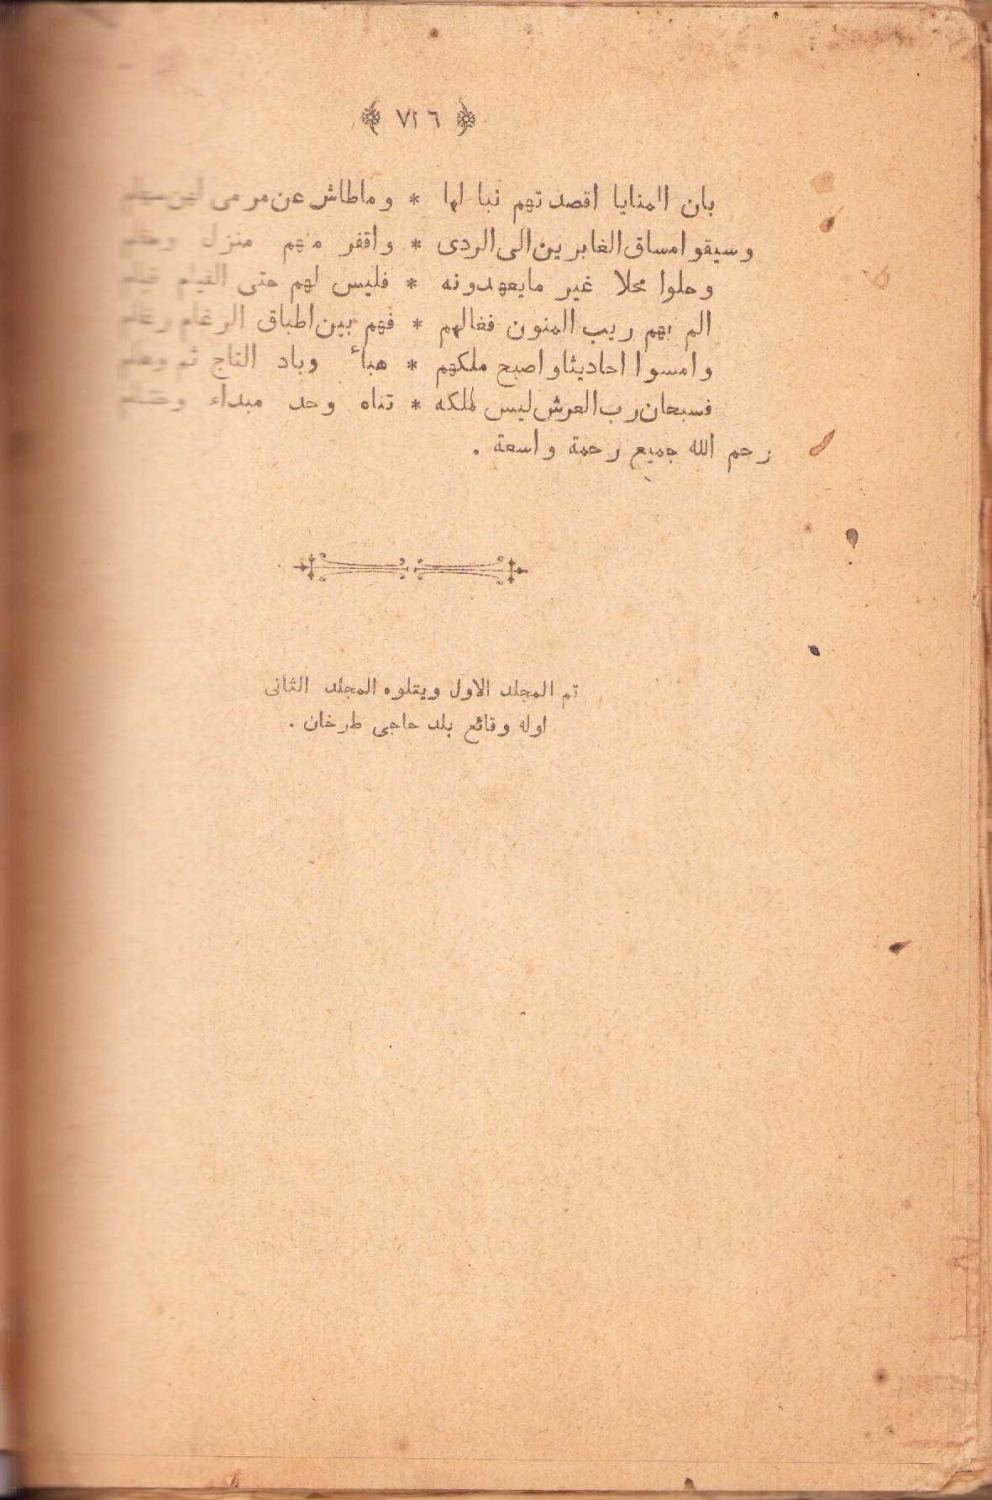 ﴿ ٧٢٦ ﴾
بان المنايا اقصدتهم نبالها * وماطاش عن مرمى لهن سهام
وسيقوا مساق الغابرين الى الردى * واقفر منهم منزل
وحلوا محلا غير مايعهدونه * فليس لهم حتى القيام قيام
الم بهم ريب المنون فغالهم * فهم بين اطباق الرغام رغام
وامسوا احاديثا واصبح ملكهم * هباٴ وباد التاج ثم
فسبحان رب العرش ليس لملكه * تناه وحد مبداء
رحم الله جميع رحمة واسعة .
تم المجلد الاول ويتلوه المجلد الثانى
اوله وقائع بلد حاجى طرخان .